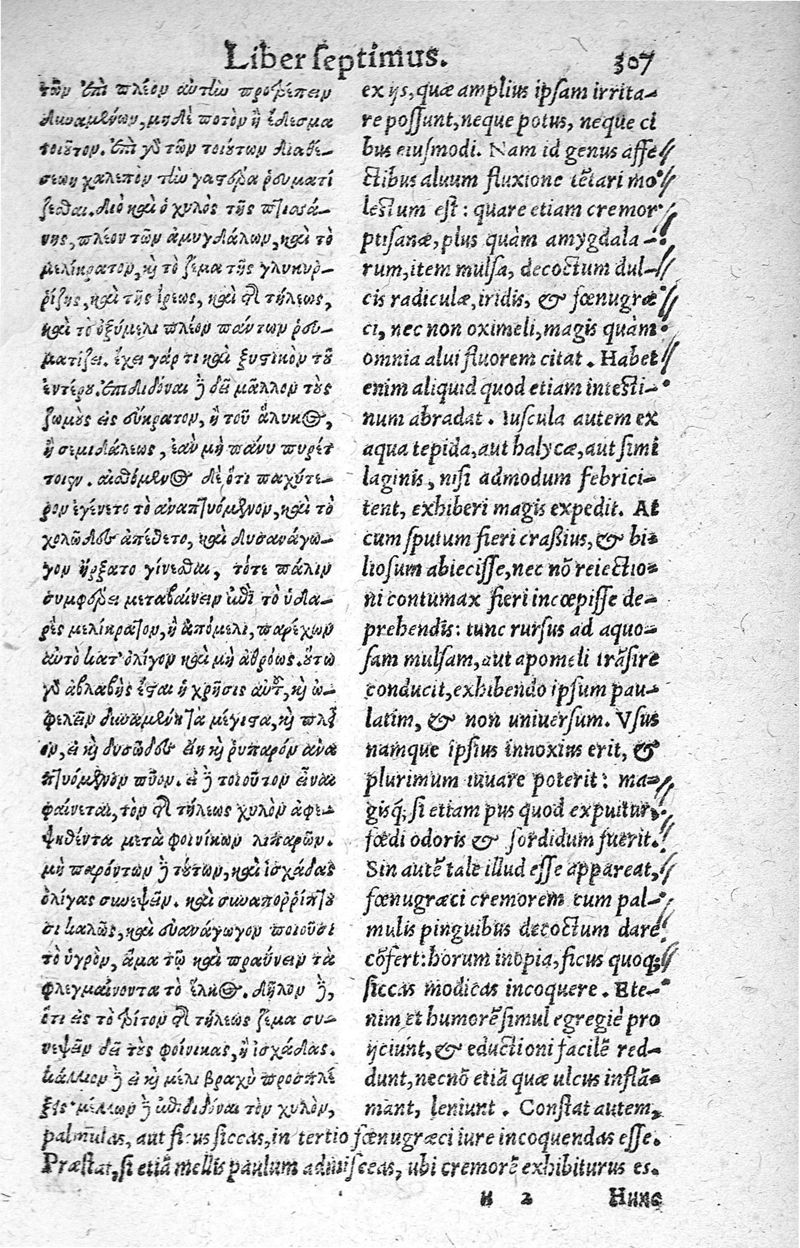 Liber septimus. 307
τῶν ἐπὶ πλέον αὐτὴν προτρέπειν
δυναμένων, μηδὲ ποτὸν ἢ ἔδεσμα
τοιοῦτον. ἐπὶ γὸ τῶν τοιούτων διαθέ-
σεων χαλεπὸν τὴν γαστέρα ῥευματί
ζεσθαι. διὸ καὶ ὁ χυλὸς τῆς πτισά-
νης, πλέον τῶν ἀμυγδάλων, καὶ τὸ
μελίκρατον, κὶ τὸ ζέμα τῆς γλυκυρ-
ρίζης, καὶ τῆς ἴρεως, καὶ τῆς τήλεως,
καὶ τὸ ὀξύμελι πλέον πάντων ῥευ-
ματίζει. ἔχει γάρ τι καὶ ξυστικὸν τοῦ
ἐντέρου. ἐπιδιδόναι δὲ δεῖ μᾶλλον τοὺς
ζωμοὺς εἰς εὔκρατον, ἢ τοῦ ἅλυκος,
ἢ σεμιδάλεως, ἐὰν μὴ πάνυ πυρέτ
τοιεν. αἰσθόμενος δὲ ὅτι παχύτε-
ρον ἐγένετο τὸ ἀναπτυόμενον, καὶ τὸ
χολῶδες ἀπέθετο, καὶ δυσανάγω-
γον ἤρξατο γίνεσθαι, τότε πάλιν
συμφέρει μεταβαίνειν ἐπὶ τὸ ὑδα-
ρὲς μελίκρατον, ἢ ἀπόμελι, παρέχων
αὐτὸ κατ' ὀλίγον καὶ μὴ ἀθρόως. οὕτω
γὸ ἀβλαβὴς ἔσται ἡ χρῆσις αὐτοῦ, κὶ ὠ-
φελεῖν δυναμένη τὰ μέγιστα, κὶ πλέ
ον, εἰ κὶ δυσῶδες εἴη κὶ ῥυπαρόν ἀνα
πτυόμενον πύον. εἰ δὲ τοιοῦτον εἶναι
φαίνεται, τὸν τῆς τήλεως χυλὸν ἀφε-
ψηθέντα μετὰ φοινίκων λιπαρῶν.
μὴ παρόντων δὲ τούτων, καὶ ἰσχάδας
ὀλίγας συνεψεῖν. καὶ συναπορρίπτου
σι καλῶς, καὶ εὐανάγωγον ποιοῦσι
τὸ ὑγρὸν, ἅμα τῷ καὶ πραΰνειν τὰ
φλεγμαίνοντα τὸ ἕλκος. δῆλον δὲ,
ὅτι εἰς τὸ τρίτον τῆς τήλεως ζέμα συ-
νεψεῖν δεῖ τοὺς φοίνικας, ἢ ἰσχάδας.
κάλλιον δὲ εἰ κὶ μέλι βραχὺ προσπλέ
ξεις μέλλων δὲ ἐπιδιδόναι τὸν χυλὸν,
ex ijs, quæ amplius ipsam irrita-
re possunt, neque potus, neque ci
bus eiusmodi. Nam id genus affe
ctibus aluum fluxione tẽtari mo
lestum est: quare etiam cremor
ptisanæ, plus quàm amygdala-
rum, item mulsa, decoctum dul-
cis radiculæ, iridis, & fœnugræ
ci, nec non oximeli, magis quàm
omnia alui fluorem citat. Habet
enim aliquid quod etiam intesti-
num abradat. Iuscula autem ex
aqua tepida, aut halycæ, aut simi
laginis, nisi admodum febrici-
tent, exhiberi magis expedit. At
cum sputum fieri crassius, & bi-
liosum abiecisse, nec nõ reiectio-
ni contumax fieri incœpisse de-
prehendis: tunc rursus ad aquo-
sam mulsam, aut apomeli trãsire
conducit, exhibendo ipsum pau-
latim, & non uniuersum. Vsus
namque ipsius innoxius erit, &
plurimum iuuare poterit: ma-
gisq́; si etiam pus quod expuitur,
fœdi odoris & sordidum fuerit.
Sin autẽ tale illud esse appareat,
fœnugræci cremorem cum pal-
mulis pinguibus decoctum dare
cõfert: horum inopia, ficus quoq;
siccas modicas incoquere. Ete-
nim et humorẽ simul egregiè pro
ijciunt, & eductioni facilẽ red-
dunt, necnõ etiã quæ ulcus inflã-
mant, leniunt. Constat autem,
palmulas, aut ficus siccas, in tertio fœnugræci iure incoquendas esse.
Præstat, si etiã mellis paulum admisceas, ubi cremorẽ exhibiturus es.
u 2 Hunc